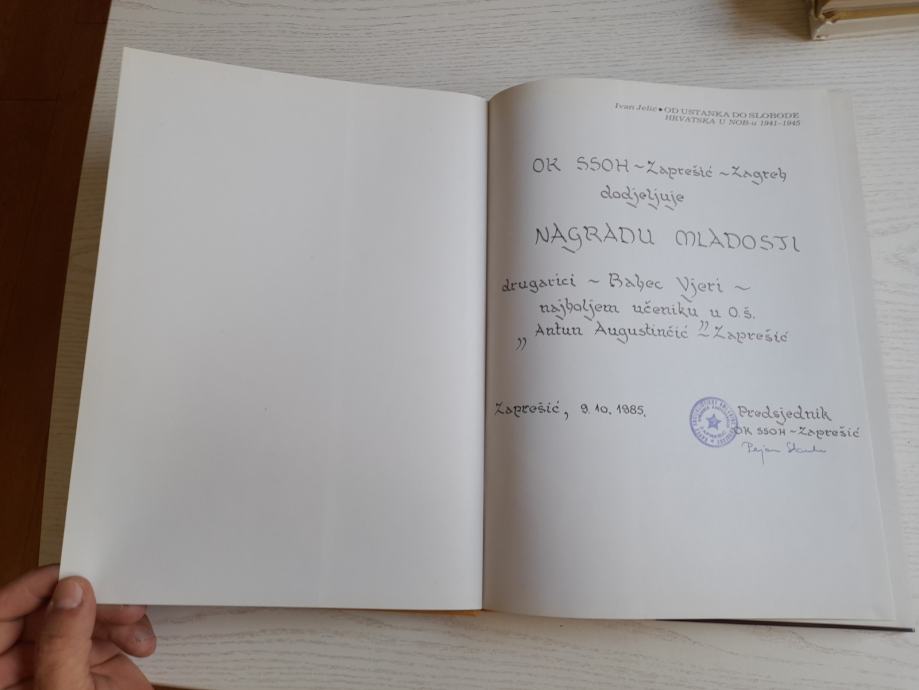 Ivan Jelić • OD USTANKA DO SLOBODE
HRVATSKA U NOB-u 1941–1945
OK SSOH ~ Zaprešić ~ Zagreb
dodjeljuje
NAGRADU MLADOSTI
drugarici ~ Babec Vjeri ~
najboljem učeniku u O.š.
„Antun Augustinčić” ~ Zaprešić
Zaprešić, 9. 10. 1985.
Predsjednik
OK SSOH ~ Zaprešić